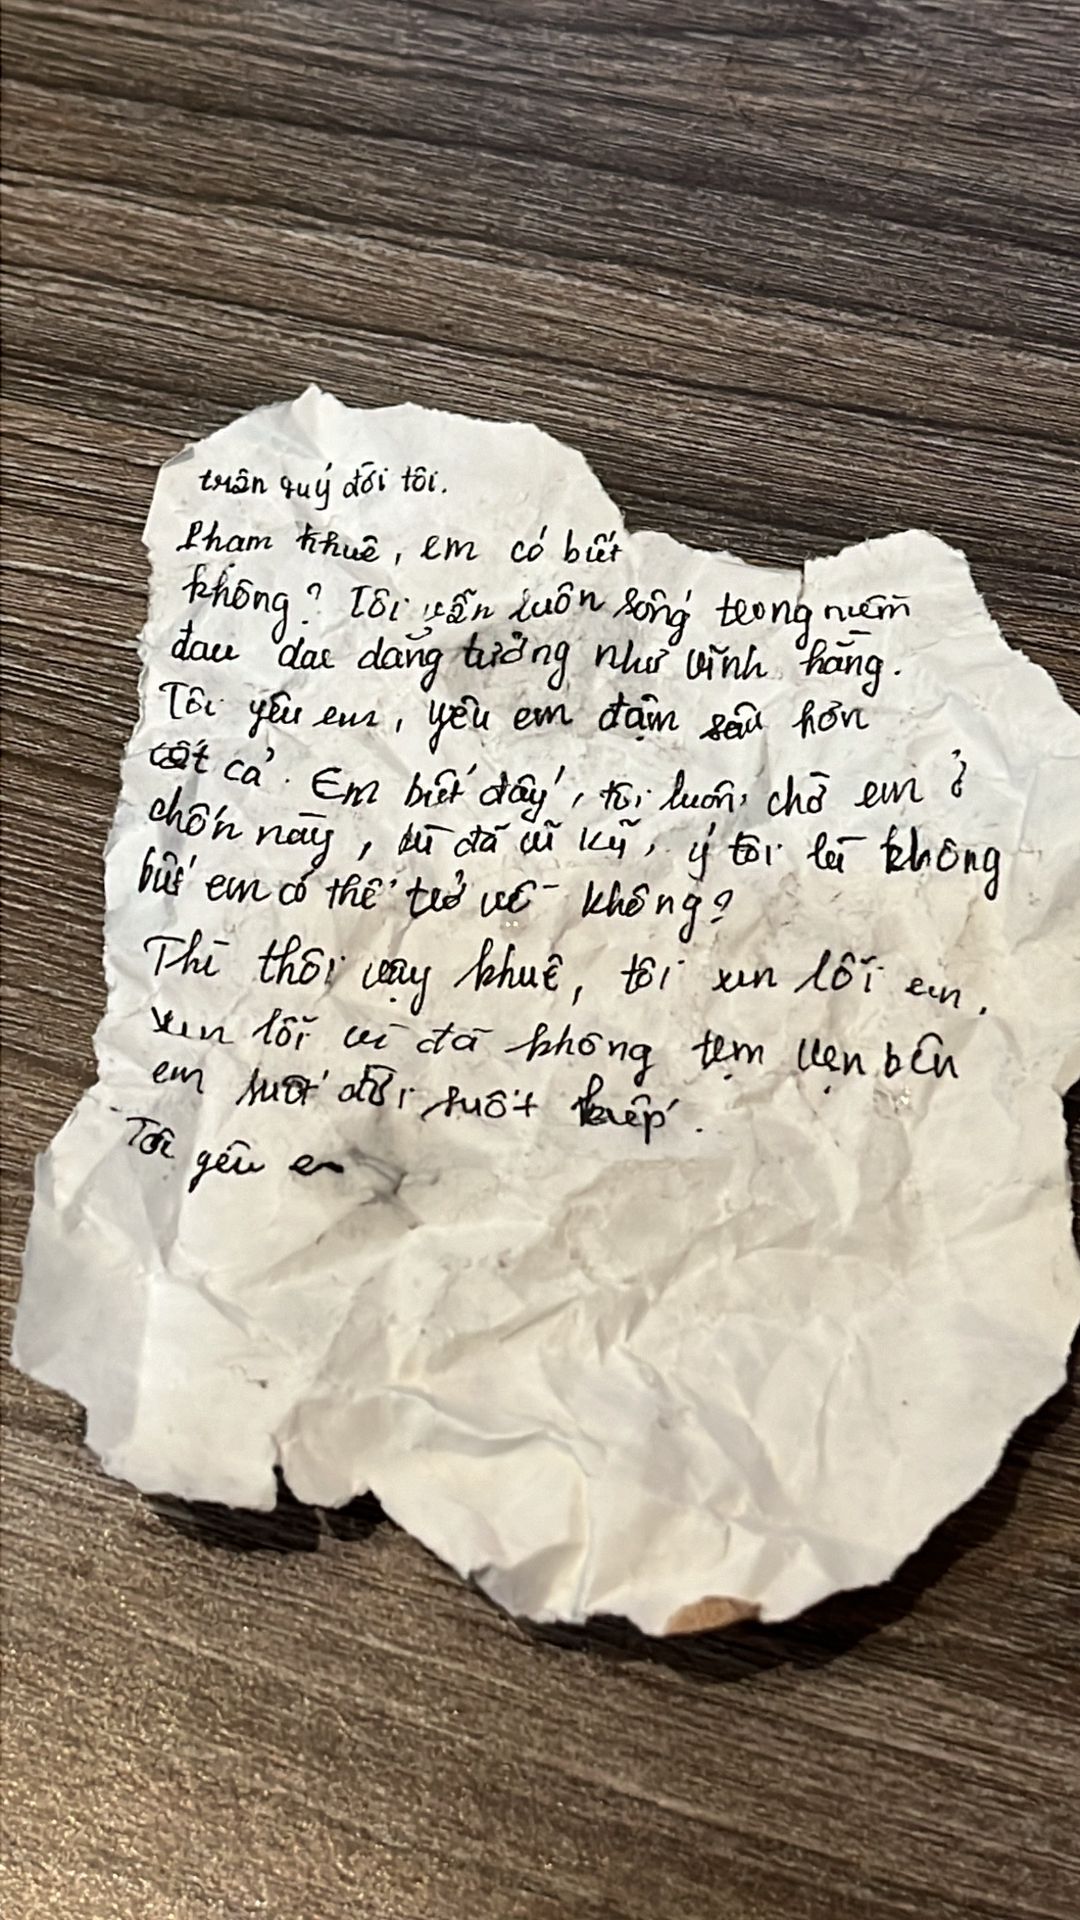 trân quý đối tôi.
Phạm Khuê, em có biết
không? Tôi vẫn luôn sống trong niềm
đau dai dẳng tưởng như vĩnh hằng.
Tôi yêu em, yêu em đậm sâu hơn
tất cả. Em biết đấy, tôi luôn chờ em ở
chốn này, dù đã cũ kỹ, ý tôi là không
biết em có thể trở về không?
Thì thôi vậy Khuê, tôi xin lỗi em,
xin lỗi vì đã không trọn vẹn bên
em suốt đời suốt kiếp.
Tôi yêu em